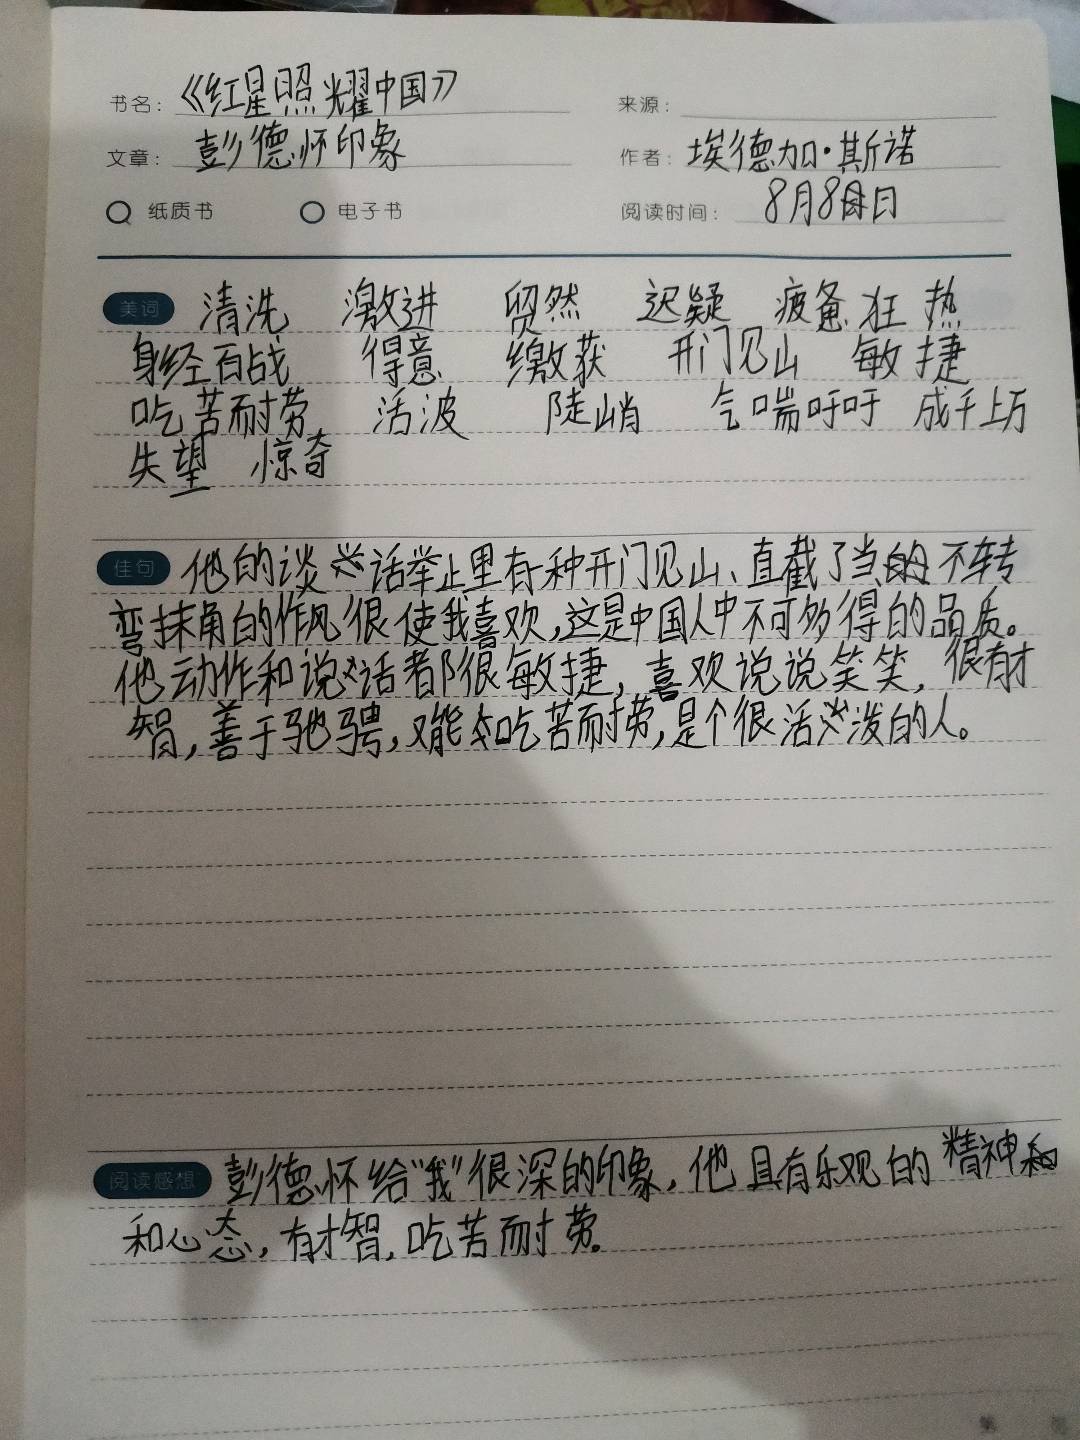 书名：《红星照耀中国》 来源：
文章：彭德怀印象 作者：埃德加·斯诺
纸质书 电子书 阅读时间：8月8日
美词 清洗 激进 贸然 迟疑 疲惫 狂热
身经百战 得意 缴获 开门见山 敏捷
吃苦耐劳 活波 陡峭 气喘吁吁 成千上万
失望 惊奇
佳句 他的谈话举止里有种开门见山、直截了当的不转
弯抹角的作风很使我喜欢，这是中国人中不可多得的品质。
他动作和说话都很敏捷，喜欢说说笑笑，很有才
智，善于驰骋，又能吃苦耐劳，是个很活泼的人。
阅读感想 彭德怀给“我”很深的印象，他具有乐观的精神
和心态，有才智，吃苦而耐劳。